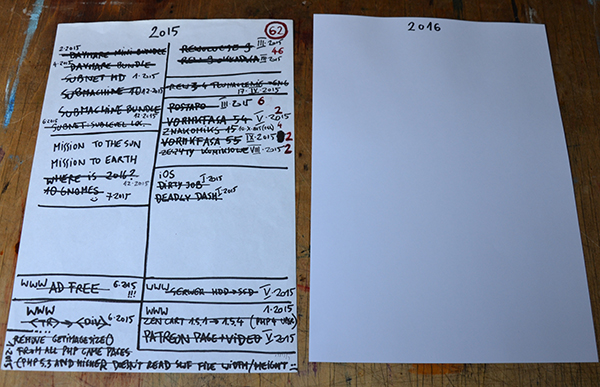 2015
62
2·2015 DAYMARE MINI BUNDLE
4·2015 DAYMARE BUNDLE
SUBNET HD 1·2015
SUBMACHINE 10 12·2015
SUBMACHINE BUNDLE
12·2015
6·2015 SUBNET SUBLEVEL LOC.
MISSION TO THE SUN
MISSION TO EARTH
WHERE IS 2016?
12·2015
10 GNOMES
7·2015
REVOLUCJE 9 III·2015
46
III·2015
17·IV·2015
POSTAPO III·2015 6
VORMKFASA 54 V·2015 2
ZNAKOMIKS 15 4
VORMKFASA 55 IX·2015 2
ZESZYTY KOMIKSOWE VIII·2015 2
iOS
DIRTY JOB I·2015
DEADLY DASH I·2015
WWW AD FREE 6·2015
!!!
WWW SERWER HDD→SSD V·2015
WWW
<TR>→<DIV> 6·2015
WWW 1·2015
ZEN CART 1.5.1→1.5.4 (PHP4
PATREON PAGE+VIDEO V·2015
REMOVE GETIMAGESIZE()
FROM ALL PHP GAME PAGES
(PHP 5.5 AND HIGHER DOESN'T READ SWF FILE WIDTH/HEIGHT
V·2015
2016